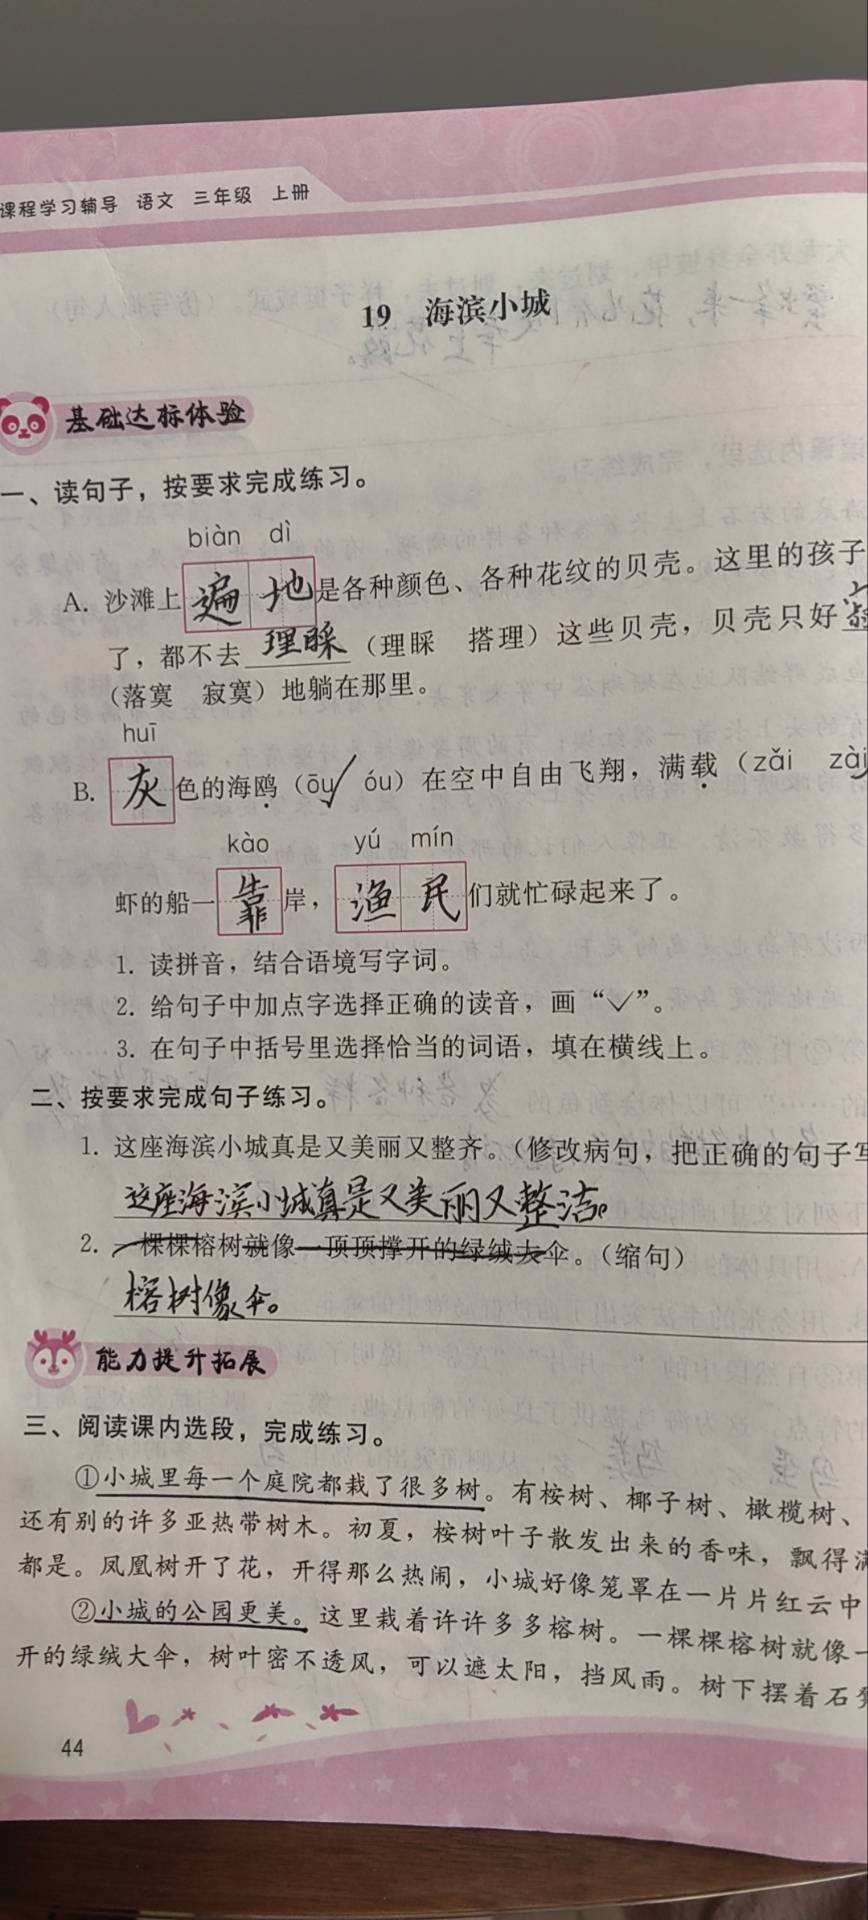 课程学习辅导 语文 三年级 上册
19 海滨小城
基础达标体验
一、读句子，按要求完成练习。
biàn dì
A. 沙滩上遍地是各种颜色、各种花纹的贝壳。这里的孩子
了，都不去理睬（理睬 搭理）这些贝壳，贝壳只好
（落寞 寂寞）地躺在那里。
huī
B. 灰色的海鸥（ōu✓ óu）在空中自由飞翔，满载（zǎi zài
kào yú mín
虾的船一靠岸，渔民们就忙碌起来了。
1. 读拼音，结合语境写字词。
2. 给句子中加点字选择正确的读音，画“✓”。
3. 在句子中括号里选择恰当的词语，填在横线上。
二、按要求完成句子练习。
1. 这座海滨小城真是又美丽又整齐。（修改病句，把正确的句子写
这座海滨小城真是又美丽又整洁。
2. 一棵棵榕树就像一顶顶撑开的绿绒大伞。（缩句）
榕树像伞。
能力提升拓展
三、阅读课内选段，完成练习。
①小城里每一个庭院都栽了很多树。有桉树、椰子树、橄榄树、
还有别的许多亚热带树木。初夏，桉树叶子散发出来的香味，飘得满
都是。凤凰树开了花，开得那么热闹，小城好像笼罩在一片片红云中
②小城的公园更美。这里栽着许许多多榕树。一棵棵榕树就像一
开的绿绒大伞，树叶密不透风，可以遮太阳，挡风雨。树下摆着石凳
44